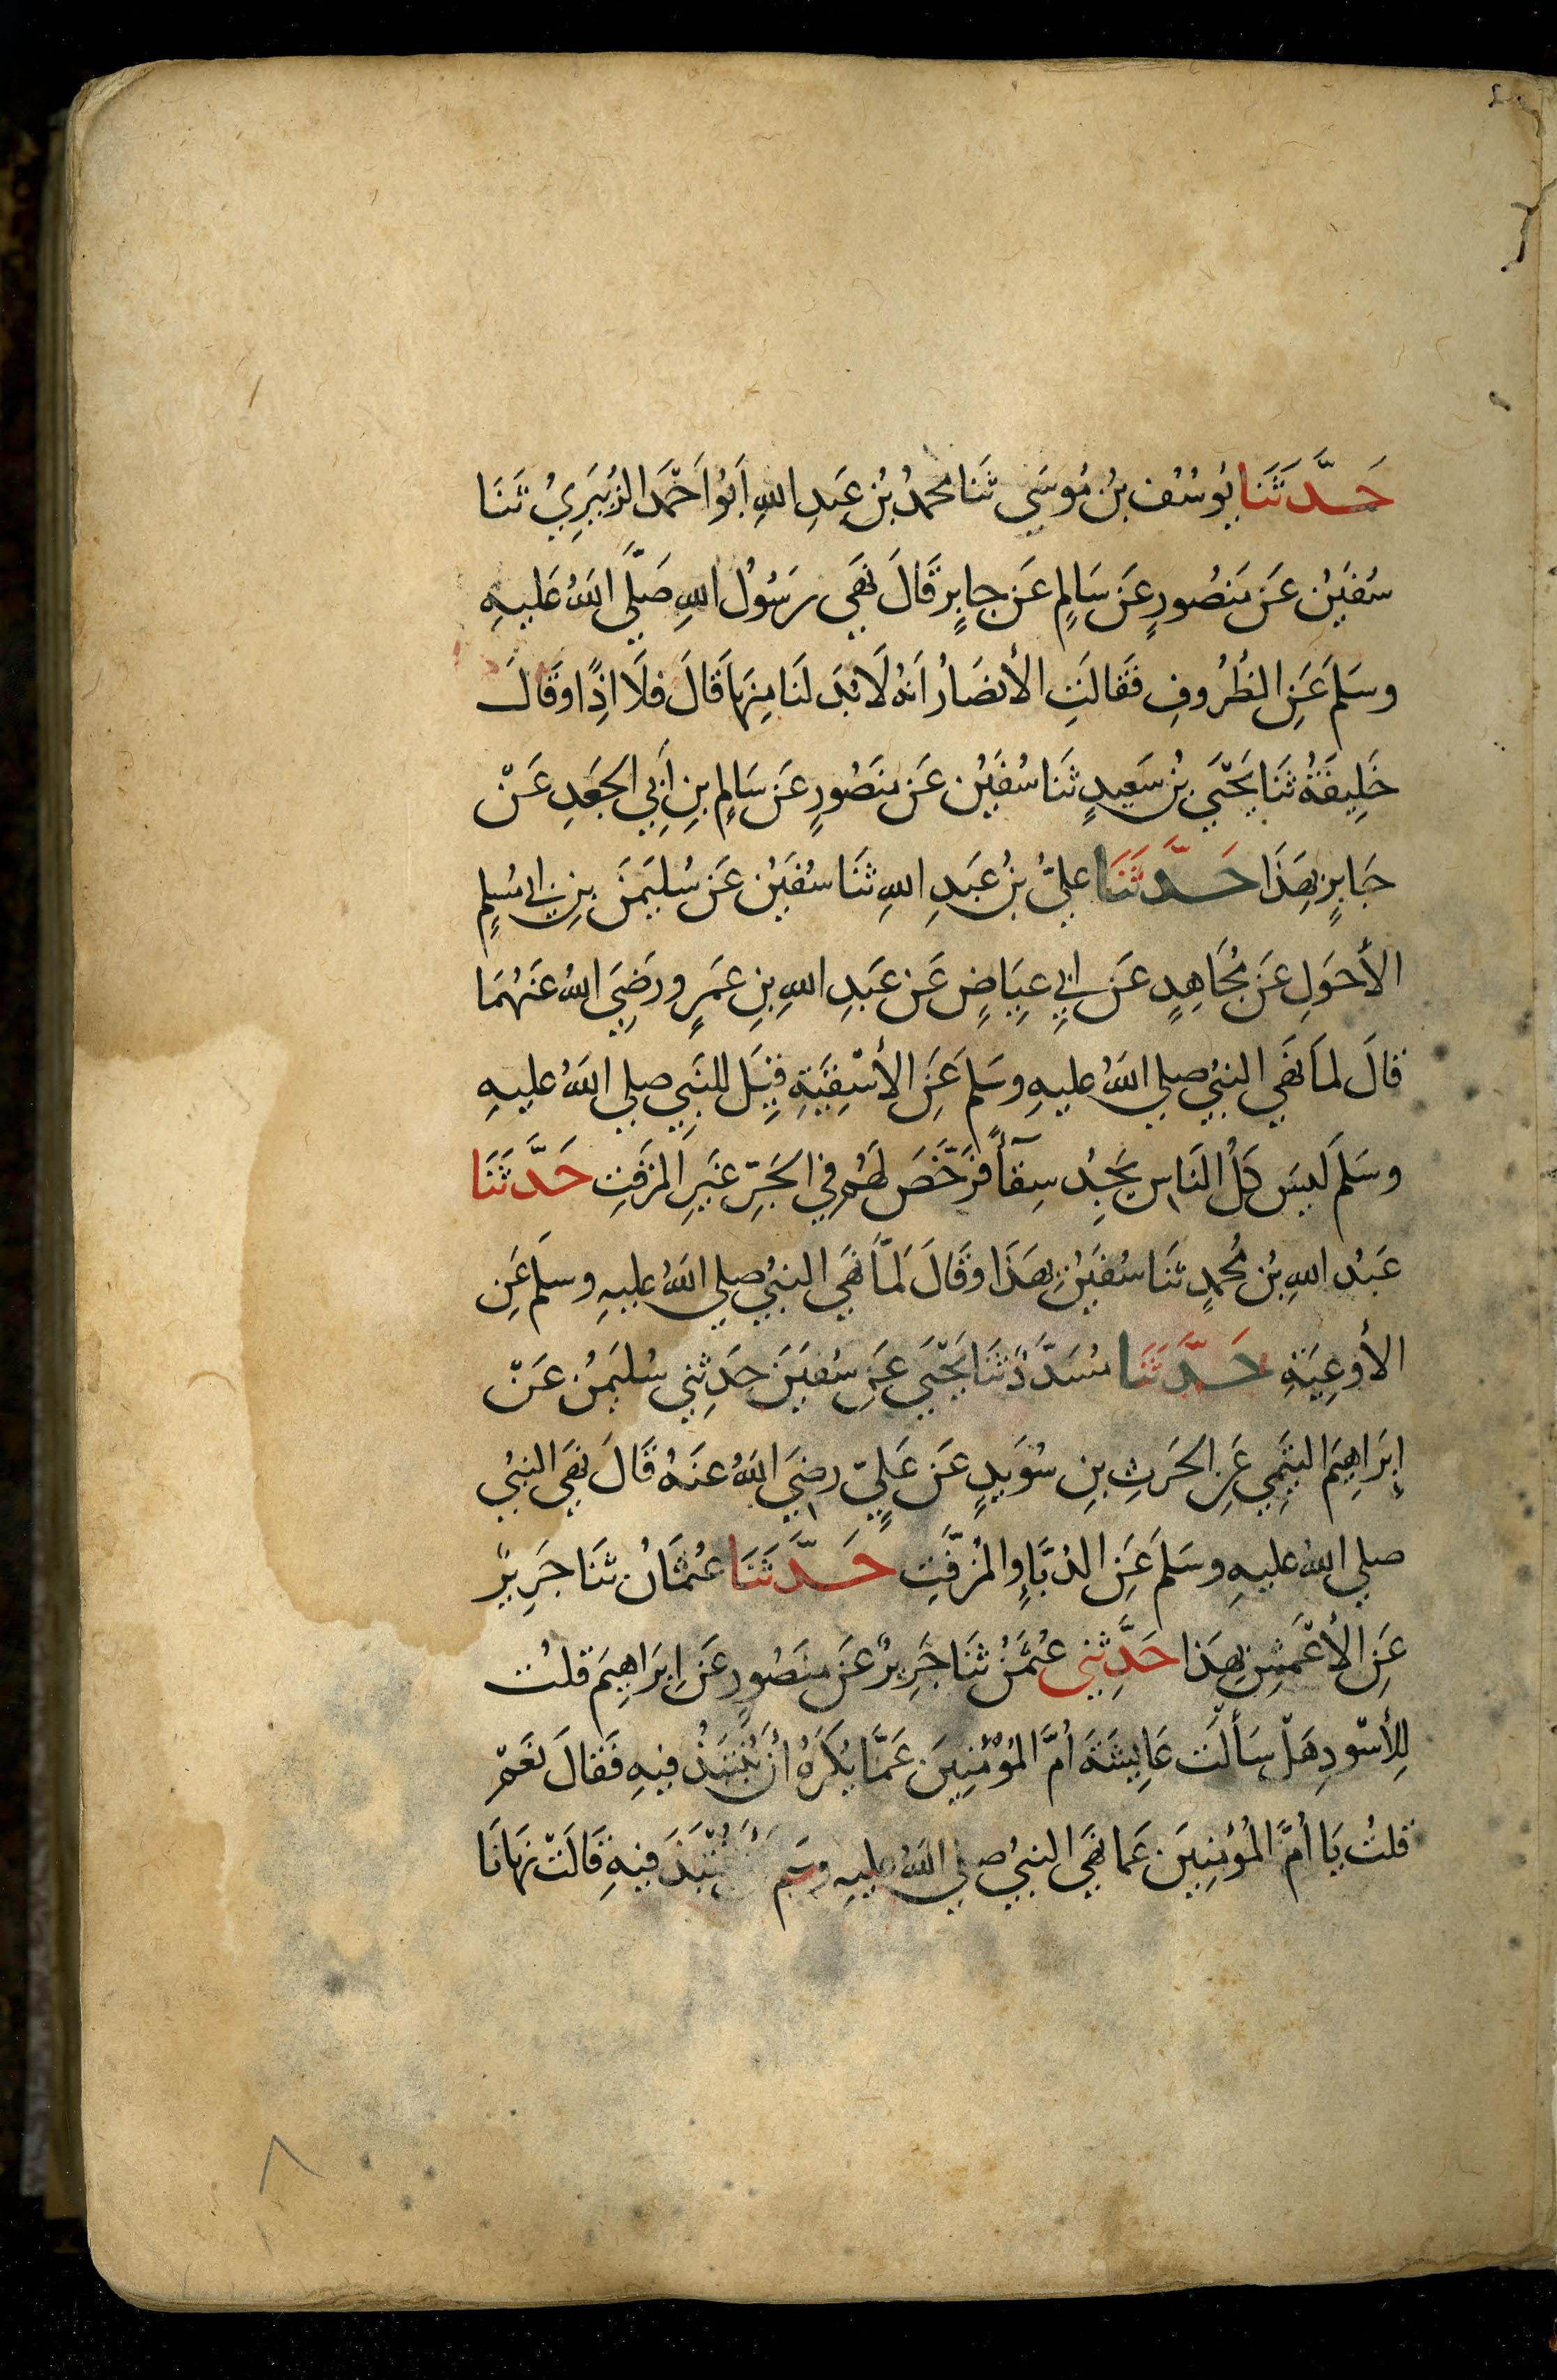 حَدَّثَنَا يُوسُف بنُ مُوسَى ثَنَا محمدُ بْنُ عَبدِ اللهِ اَبُو اَحْمَدَ الزُبَيرِيُ ثَنَا
سُفيَنُ عَن مَنصُورٍ عَن سَالِمٍ عَن جابِرٍ قَالَ نَهَى رَسُولُ اللهِ صَلَّى اللهُ عَليهِ
وسَلمَ عَنِ الظُرُوفِ فَقالَتِ الأنصَارُ اَنهُ لَا بُدَ لَنا مِنهَا قَالَ فلَا اذًا وقَالَ
خَلِيفَةُ ثَنَا يَحْيَى بنُ سَعِيدٍ ثَنَا سُفيَنُ عَن مَنصُورٍ عَن سَالِمِ بنِ أَبِي الجَعدِ عَنْ
جَابِرٍ بِهَذَا حَدَّثَنَا عليُّ بنُ عَبَدِ اللهِ ثَنَا سُفيَنُ عَن سُليَمَنَ بنِ ابي مُسلِمٍ
الأحوَلِ عَن مُجَاهِدٍ عَن ابِي عِيَاضٍ عَن عَبدِ اللهِ بنِ عَمرٍو رَضِيَ اللهُ عَنهُمَا
قالَ لمَا نَهَى النبيُ صلي اللهُ عليهِ وسَلمَ عَنِ الأسْقِيَةِ قِيلَ للنَبِي صلي اللهُ عليهِ
وسَلمَ لَيسَ كلُ النَاسِ يَجِدُ سِقآءً فرَخَّصَ لهُم فِي الجَرِّ غَيرِ المزفَتِ حَدَّثَنَا
عَبدُ اللهِ بنُ مُحمدٍ ثَنَا سُفيَنُ بِهَذَا وقَالَ لَمَّا نَهَى النبيُ صلي اللهُ عليهِ وسلمَ عَنِ
الأوعِيَةِ حَدَّثَنَا مُسَدَّدٌ ثَنَا يَحْيَى عَن سُفيَنَ حَدَثِني سُليَمنُ عَنْ
إبرَاهِيمَ التَيمِي عَنِ الحَرثِ بنِ سُوَيدٍ عَن عَليٍّ رضِيَ اللهُ عنهُ قَالَ نَهَى النبيُ
صلي اللهُ عليهِ وسَلمَ عَنِ الدُبَّاءِ والمُزفَّتِ حَدَّثَنَا عُثمَانُ ثَنَا جَرِيرٌ
عَنِ الأعْمَشِ بِهَذا حَدَّثِني عُثمَنُ ثَنَا جَرِيرٌ عَن مَنصُورٍ عَن اِبرَاهِيمَ قلتُ
لِلأسْودِ هَلْ سَأَلْتَ عَايِشَةَ أُمَّ المُؤْمِنِينَ عَمَّا يُكرَهُ أنْ يُنتَبَذَ فِيهِ فَقالَ نَعَمْ
قلتُ يَا أُمَّ المُؤمِنِينَ عَما نَهَى النبيُ صلي اللهُ عليهِ وسَلم أَن يُنْتَبَذَ فِيهِ قَالَتْ نَهَانَا